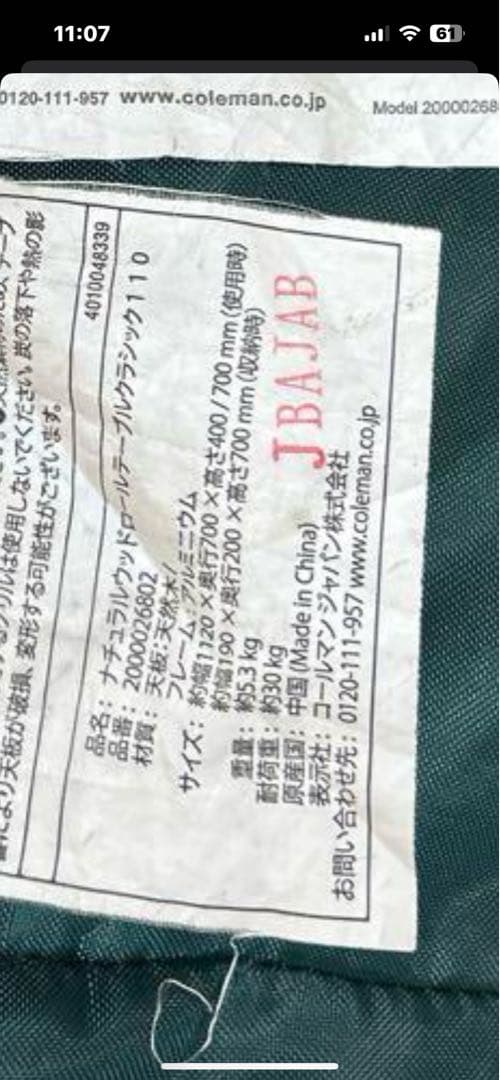 11:07
61
0120-111-957 www.coleman.co.jp
Model 20000268
により天板が破損、変形する可能性がございます。
グリルは使用しないでください。炭の落下や熱の影
4010048339
品名：ナチュラルウッドロールテーブルクラシック110
品番：2000026802
材質：天板：天然木/
フレーム：アルミニウム
サイズ：約幅1120×奥行700×高さ400/700mm(使用時)
約幅190×奥行200×高さ700mm(収納時)
重量：約5.3kg
耐荷重：約30kg
原産国：中国(Made in China)
表示社：コールマン ジャパン株式会社
お問い合わせ先：0120-111-957 www.coleman.co.jp
JBAJAB